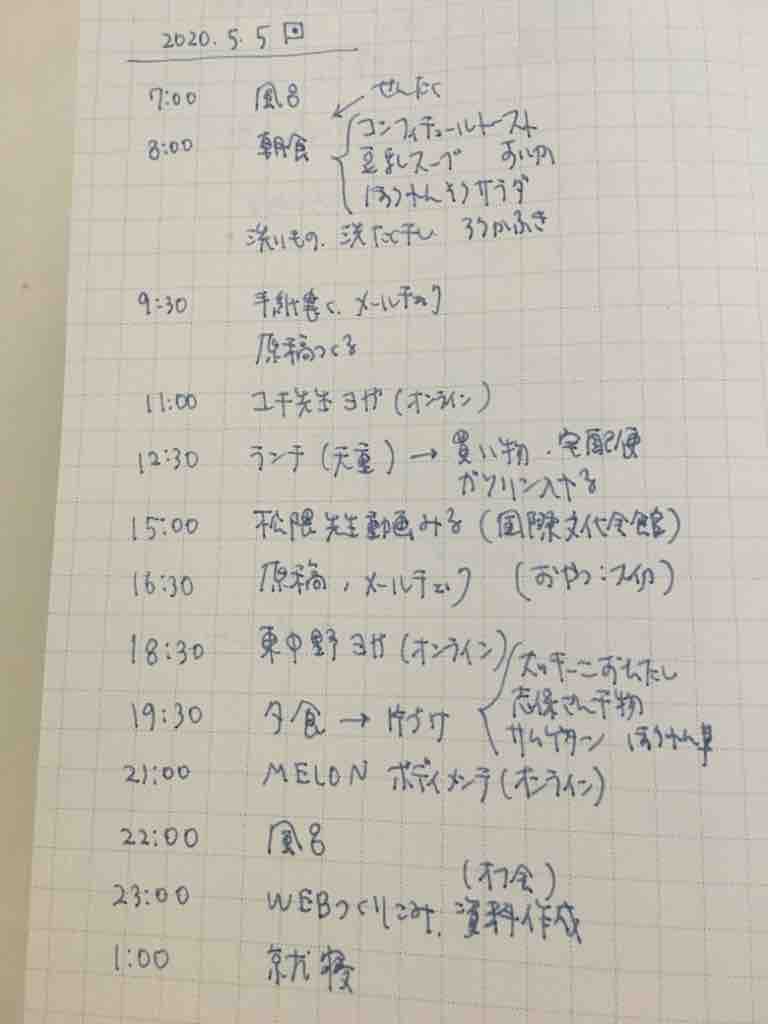 2020. 5. 5
7:00 風呂
せんたく
8:00 朝食
コンフィチュールトースト
豆乳スープ
ほうれんそうサラダ
洗いもの、洗たく干し ろうかふき
9:30 手紙書く、メールチェック
原稿つくる
11:00 ユキ先生ヨガ(オンライン)
12:30 ランチ(天童)→ 買い物・宅配便
ガソリン入れる
15:00 松隈先生動画みる(国際文化会館)
16:30 原稿、メールチェック (おやつ:スイカ)
18:30 東中野ヨガ(オンライン)
ズッキーニおひたし
19:30 夕食 → 片づけ
志保さん干物
サムゲタン ほうれん草
21:00 MELON ボディメンテ(オンライン)
22:00 風呂
23:00 WEBつくりこみ、資料作成
1:00 就寝